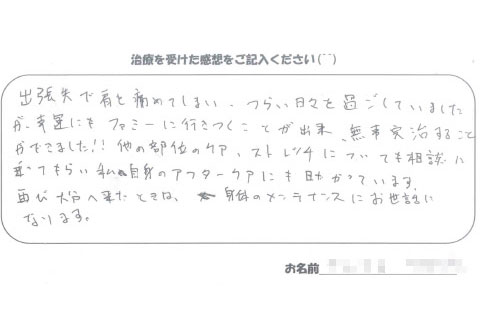 治療を受けた感想をご記入ください(^^)
出張先で肩を痛めてしまい、つらい日々を過ごしていました
が、幸運にもファミーに行きつくことが出来、無事完治すること
ができました!! 他の部位のケア、ストレッチについても相談に
乗ってもらい私自身のアフターケアにも助かっています。
再び 来たときは、身体のメンテナンスにお世話に
なります。
お名前